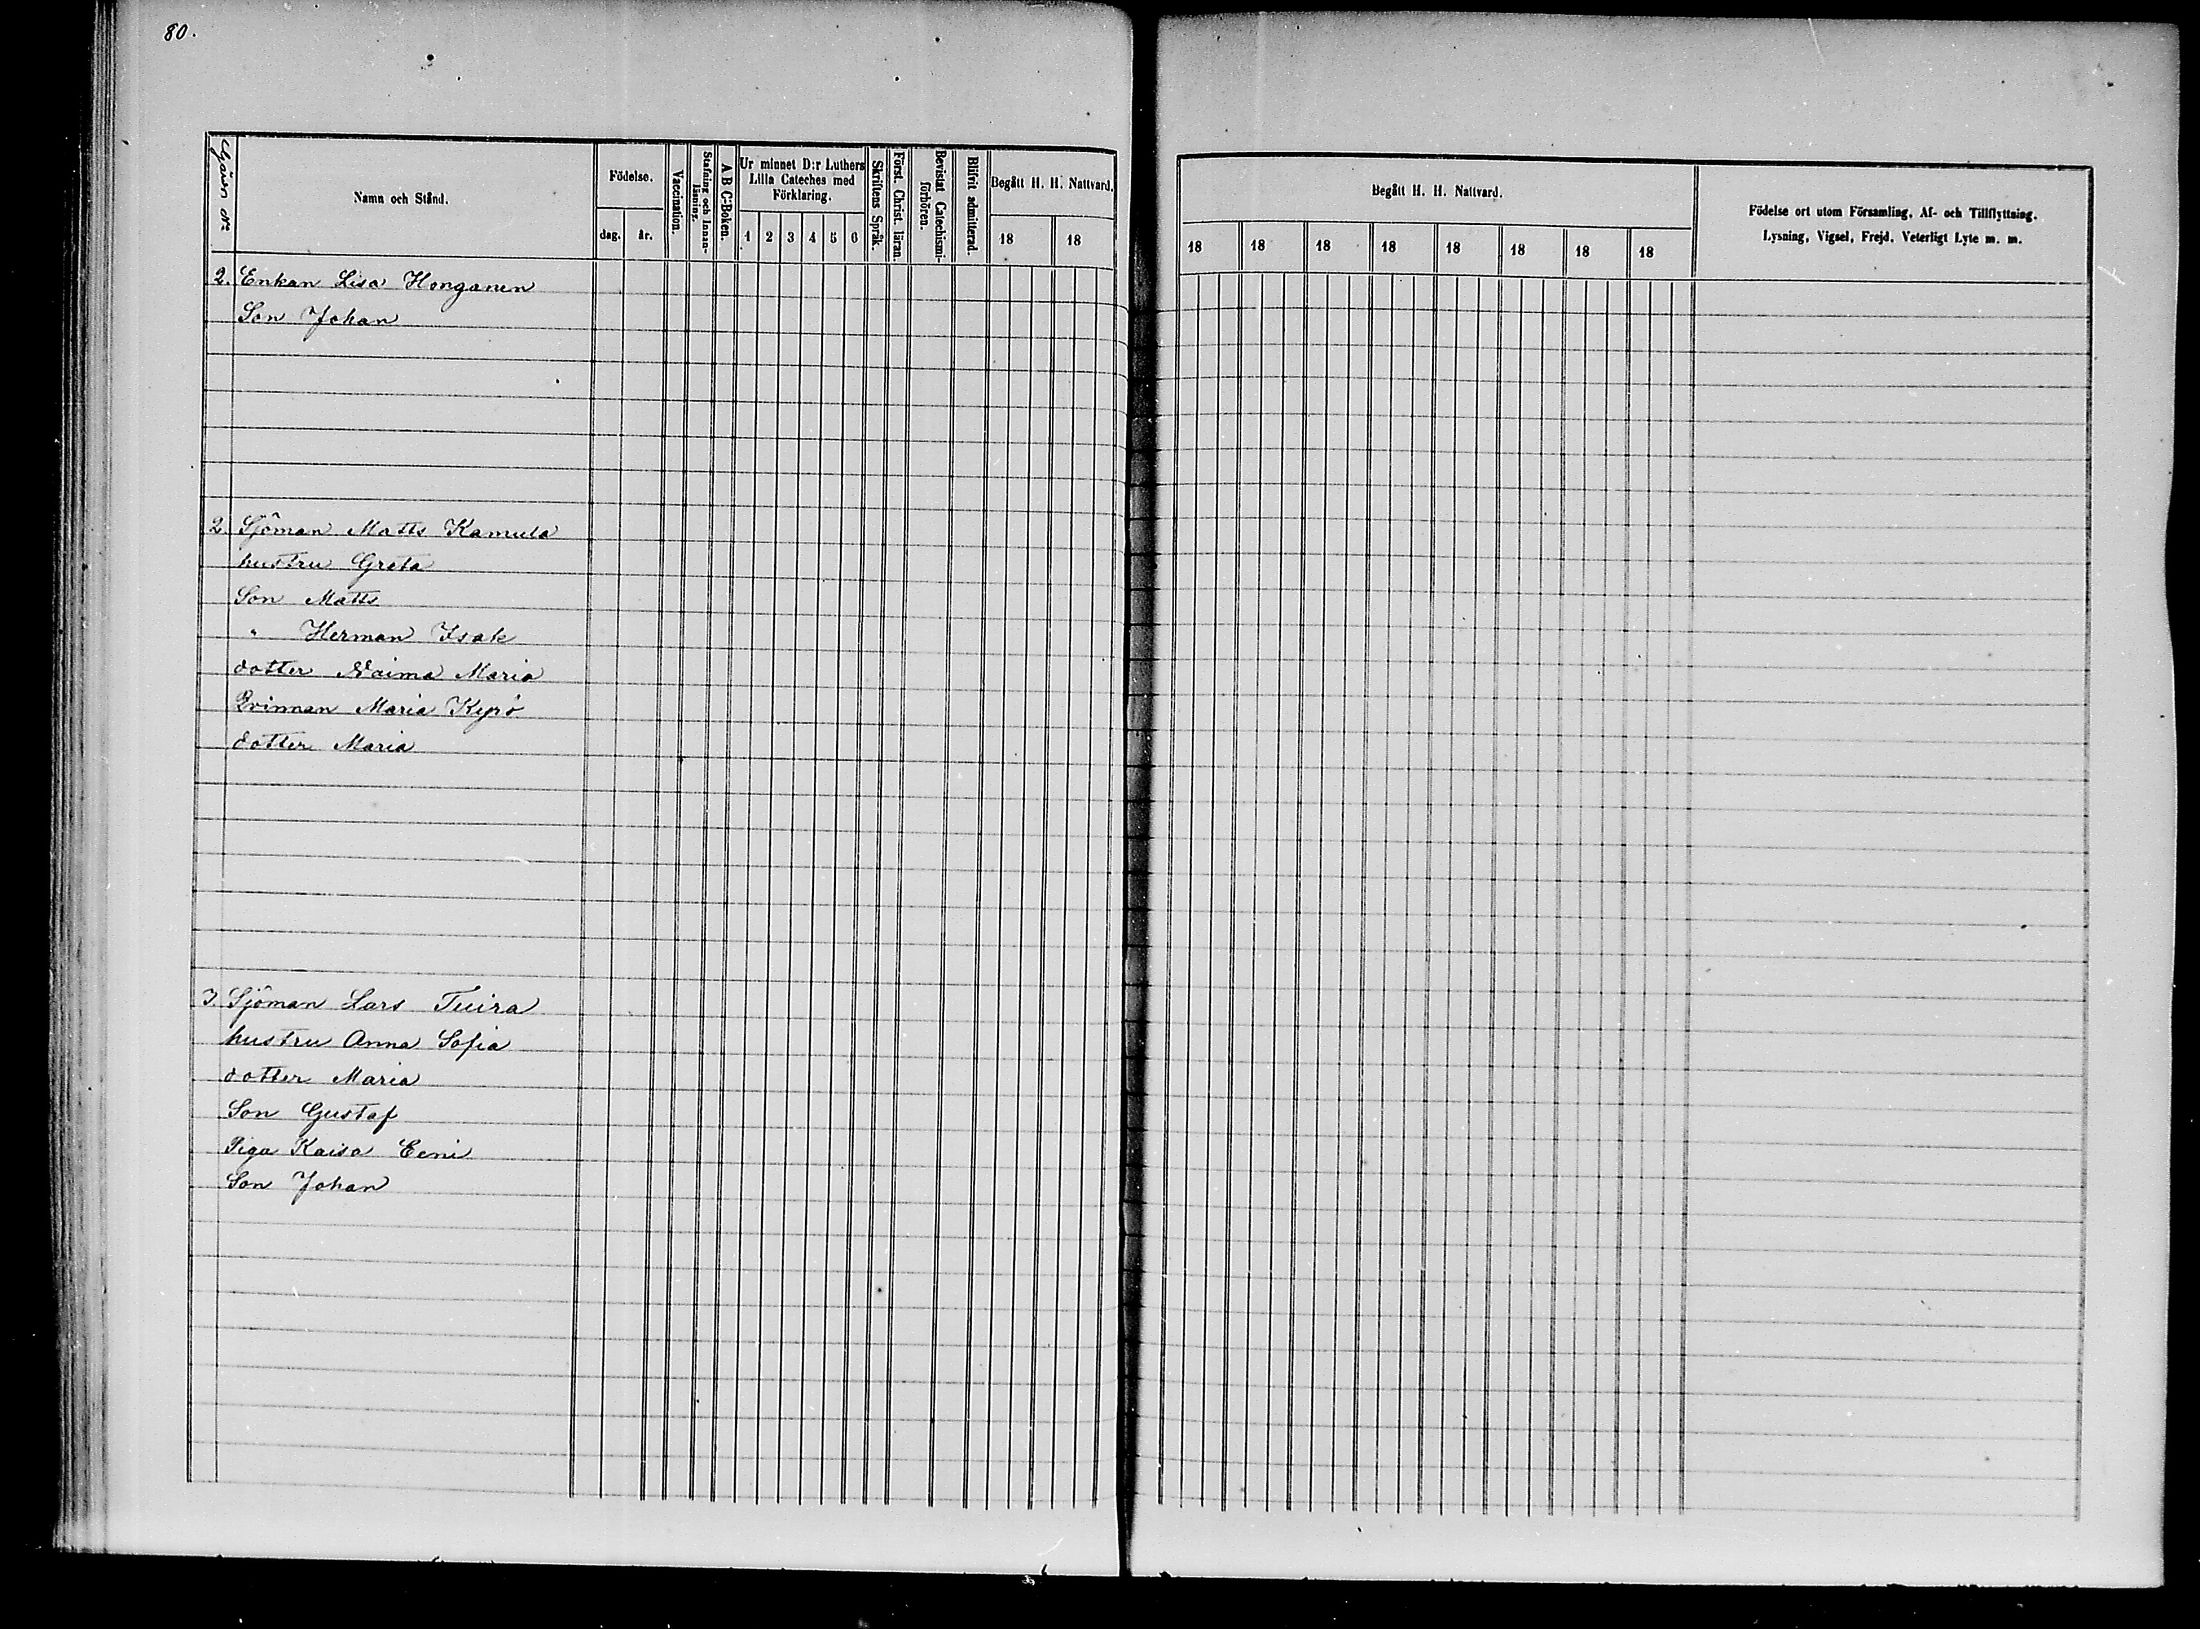 80.
Gård No
Namn och Stånd.
Födelse.
dag. år.
Vaccination.
Stafning och Innan-
läsning.
A B C-Boken.
Ur minnet D:r Luthers
Lilla Cateches med
Förklaring.
1 2 3 4 5 6
Skriftens Språk.
Först. Christ. läran.
Bevistat Catechismi-
förhören.
Blifvit admitterad.
Begått H. H. Nattvard.
18 18
Begått H. H. Nattvard.
18 18 18 18 18 18 18 18
Födelse ort utom Församling, Af- och Tillflyttning.
Lysning, Vigsel, Frejd, Veterligt Lyte m. m.
2. Enkan Lisa Honganen
Son Johan
2. Sjöman Matts Kamula
hustru Greta
Son Matts
" Herman Isak
dotter Naima Maria
Qvinnan Maria Kyrö
dotter Maria
3. Sjöman Lars Tuira
hustru Anna Sofia
dotter Maria
Son Gustaf
Piga Kaisa Eeni
Son Johan